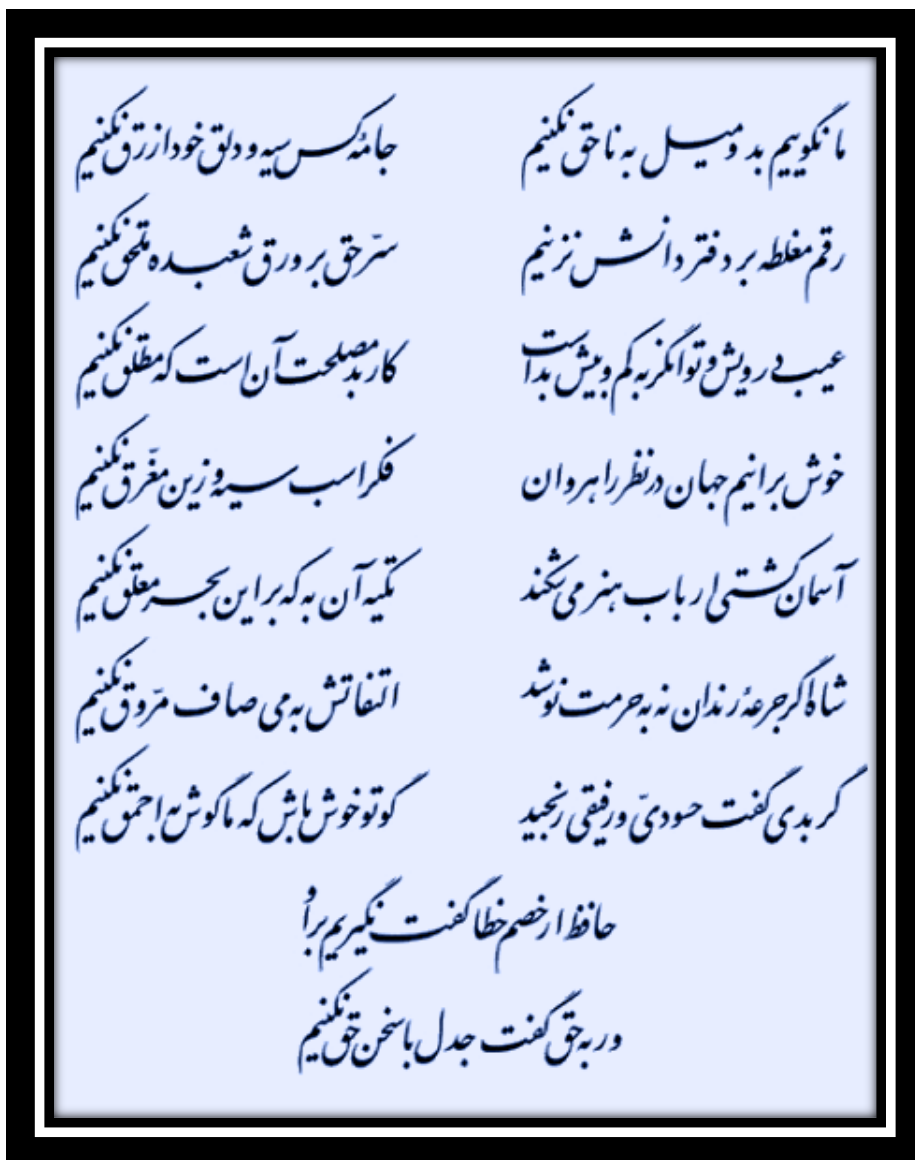 ما نگوییم بد و میل به ناحق نکنیم جامهٔ کس سیه و دلق خود ازرق نکنیم
رقم مغلطه بر دفتر دانش نزنیم سرّ حق بر ورق شعبده ملحق نکنیم
عیب درویش و توانگر به کم و بیش بد است کار بد مصلحت آن است که مطلق نکنیم
خوش برانیم جهان در نظر راهروان فکر اسب سیه و زین مغرّق نکنیم
آسمان کشتی ارباب هنر می‌شکند تکیه آن به که بر این بحر معلق نکنیم
شاه اگر جرعهٔ رندان نه به حرمت نوشد التفاتش به می صاف مروّق نکنیم
گر بدی گفت حسودیّ و رفیقی رنجید گو تو خوش باش که ما گوش به احمق نکنیم
حافظ ار خصم خطا گفت نگیریم بر او
ور به حق گفت جدل با سخن حق نکنیم